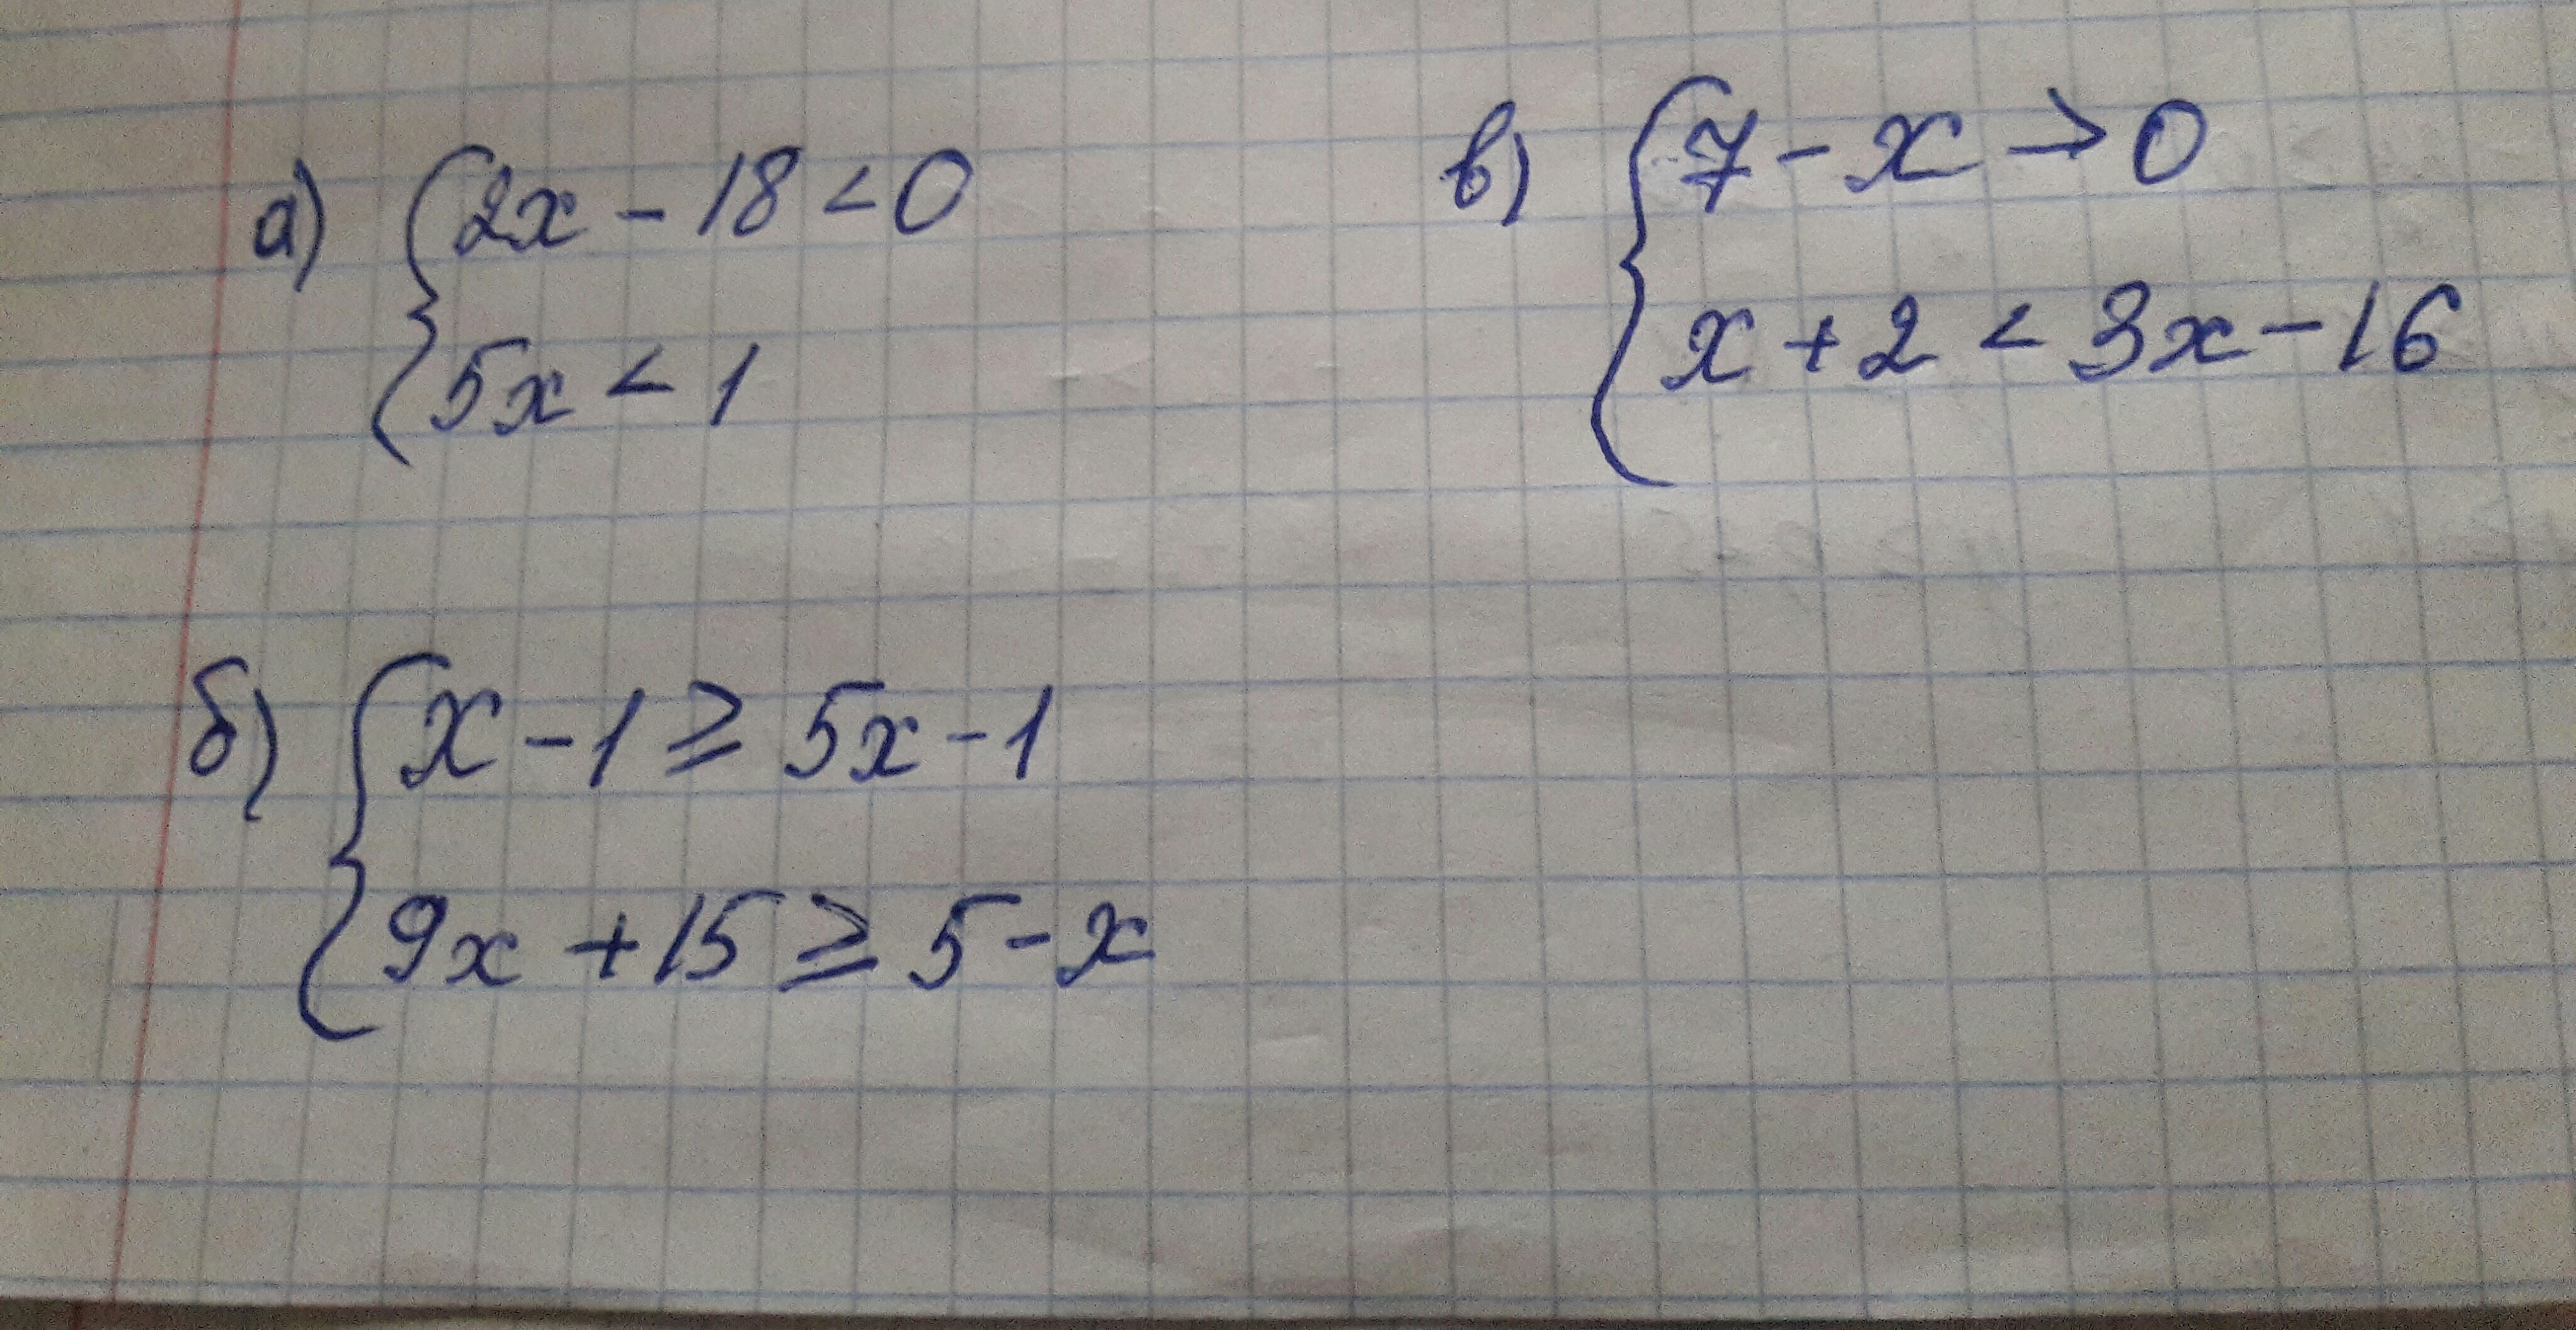 а) { 2x - 18 < 0
5x < 1
в) { 7 - x > 0
x + 2 < 3x - 16
б) { x - 1 ≥ 5x - 1
9x + 15 ≥ 5 - x